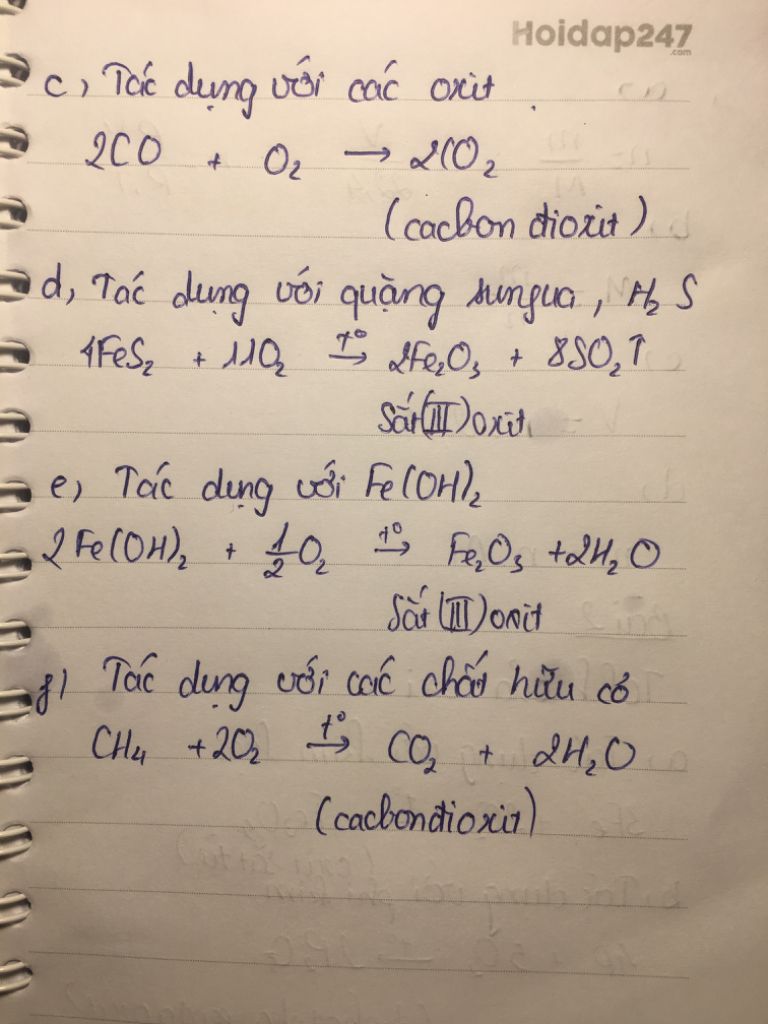 Hoidap247
.com
c, Tác dụng với các oxit.
2CO + O₂ → 2CO₂
(cacbon đioxit)
d, Tác dụng với quặng sungua, H₂S
4FeS₂ + 11O₂ t° → 2Fe₂O₃ + 8SO₂↑
Sắt(III)oxit
e, Tác dụng với Fe(OH)₂
2Fe(OH)₂ + 1/2 O₂ t° → Fe₂O₃ + 2H₂O
Sắt(III)oxit
g) Tác dụng với các chất hữu có
CH₄ + 2O₂ t° → CO₂ + 2H₂O
(cacbonđioxit)